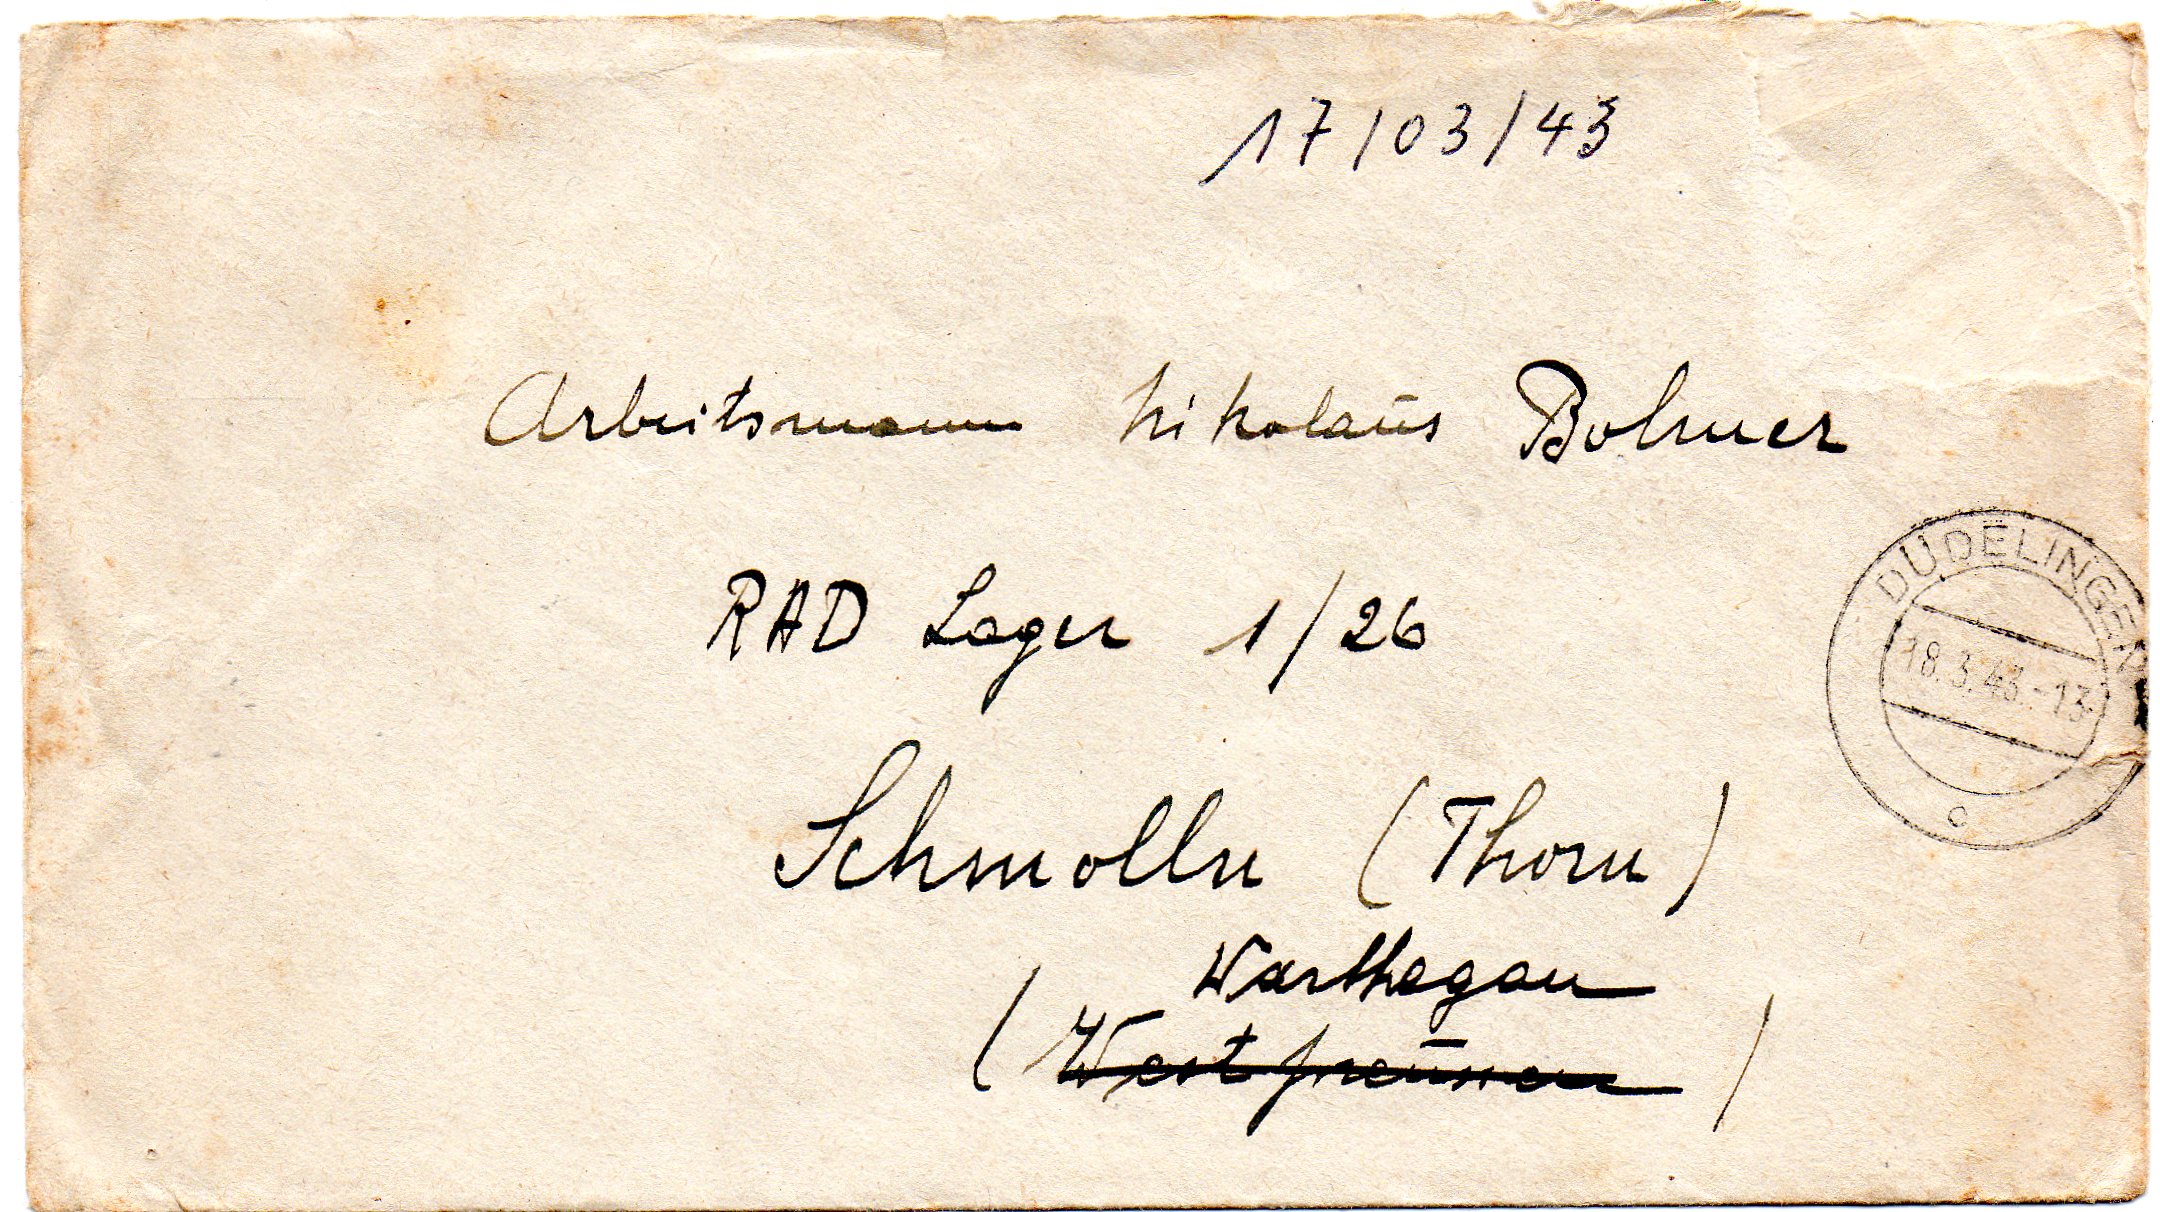 17/03/43
Arbeitsmann Nikolaus Bohmer
RAD Lager 1/26
Schmolln (Thorn)
Warthegau
(Westpreussen)
DÜDELINGEN
18.3.43.-13
c